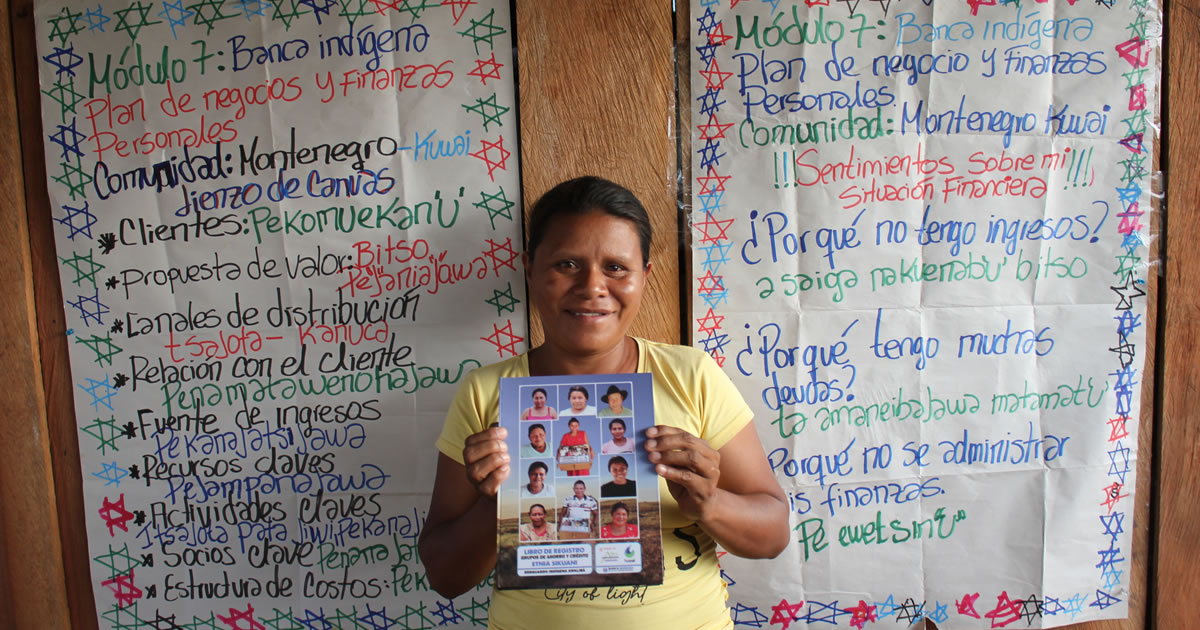 Módulo 7: Banca indígena
Plan de negocios y Finanzas
Personales
Comunidad: Montenegro-Kuwai
Lienzo de Canvas
*Clientes: Pekomuekanü
*Propuesta de valor: Bitso
Pejaniajawa
*Canales de distribución
tsalota- Kanuca
*Relación con el cliente
*Fuente de ingresos
*Recursos claves
Pejampanajawa
*Actividades claves
*Socios clave
*Estructura de Costos:
Módulo 7: Banca indígena
Plan de negocio y Finanzas
Personales.
Comunidad: Montenegro Kuwai
!!!Sentimientos sobre mi
situación Financiera!!!,
¿Por qué no tengo ingresos?
bitso
¿Porqué tengo muchas
deudas?
ta amaneibajawa
Porqué no se administrar
is finanzas.
LIBRO DE REGISTRO
GRUPOS DE AHORRO Y CRÉDITO
ETNIA SIKUANI
City of light